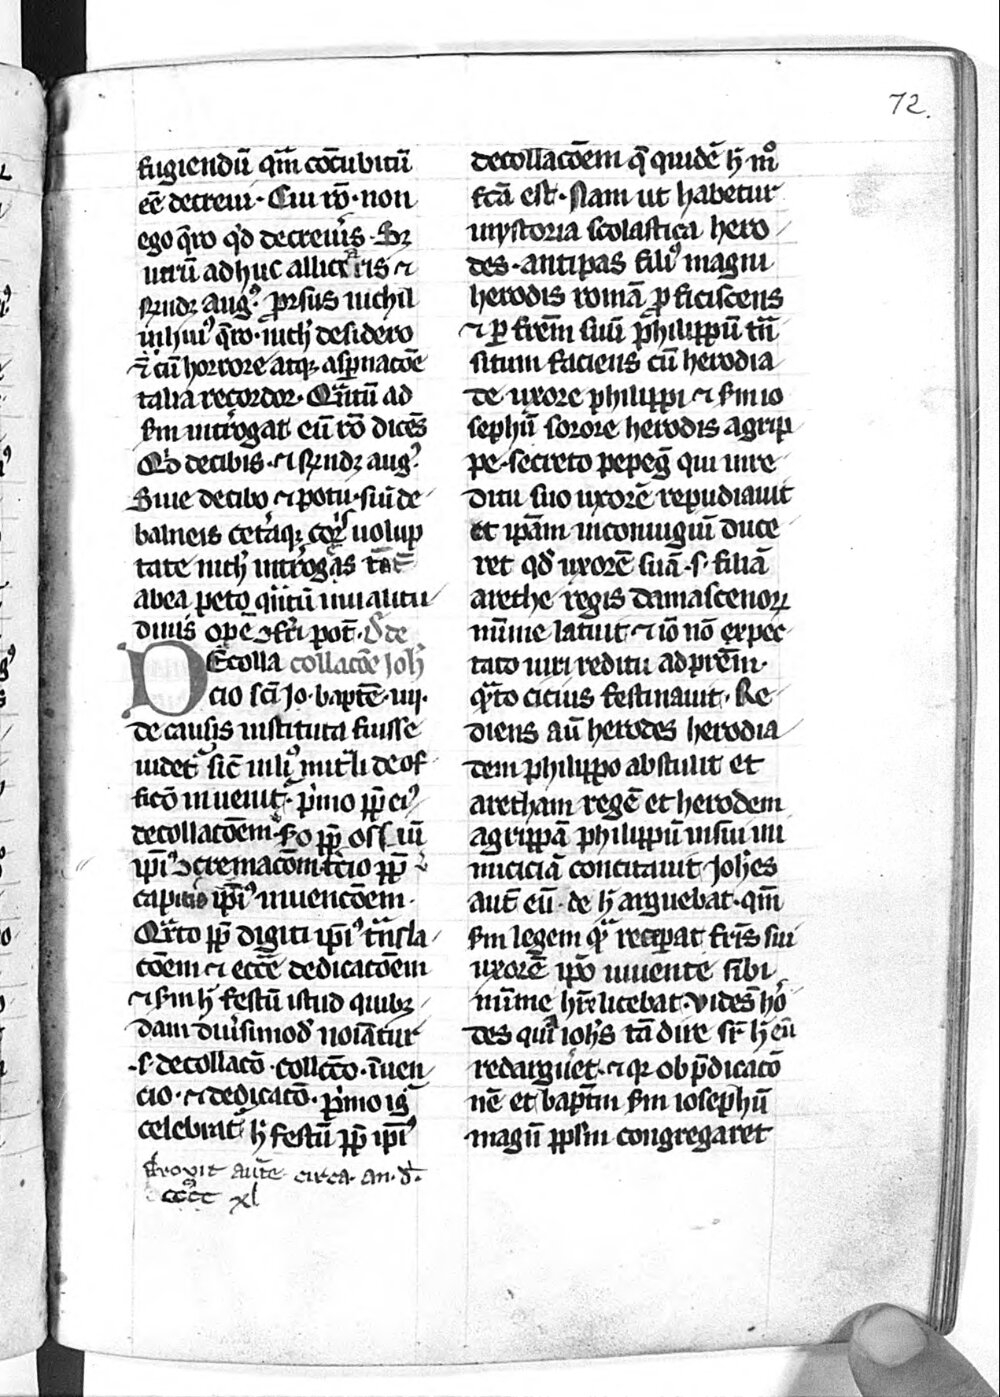 72.
fugiendū qm̄ cōcubitū
eē decreui · Cui rō · non
ego q̄ro qd̓ decreueris · Sꝫ
utrū adhuc alliceris ⁊
rn̄dꝫ aug᷒ · prorsus nichil
inhui᷒ q̄ro · nich̓ desidero
⁊ cū horrore atqꝫ asꝑnacōe
talia recordor · Qn̄tū ad
ſm introgat eū rō dicēs
Qd̓ de cibis · ⁊ rn̄dꝫ aug᷒ ·
Siue de cibo ⁊ potu siue de
balneis cetaqꝫ corꝑis uolup
tate nich̓ introgas tm̄
ab ea peto qn̄tū iuuari ua
litudinis ope pot̄ · De
DEcolla collacōe Joh̓
cio sc̄i Jo · baptē · iiij ·
de causis instituta fuisse
uidet̄ sic̄ in li᷒ mitrali de of
ficō inuenit̄ · pͥmo ꝓp̄ ei᷒
decollacōem · 2o ꝓp̄ ossiū
ip̄i᷒ ꝯcremacōem · tc̓io ꝓp̄
capitis ip̄i᷒ inuencōem ·
Qͣrto ꝓp̄ digiti ip̄i᷒ tn̄sla
cōem ⁊ ecc̄e dedicacōem
⁊ ſm h̓ festū istud quibꝫ
dam diuͥsimod̓ noiātur
· s · decollacō · collc̄cō · inuen
cio · ⁊ dedicacō · pͥmo igͥ
celebrat̄ h̓ festū ꝓp̄ ip̄i᷒
decollacōem q̄ quidē h̓ mͦ
fc̄a est · Nam ut habetur
in ystoria scolastica hero
des · antipas fili᷒ magni
herodis romā ꝓficiscens
⁊ ꝑ frēm suū philippū tn̄
situm faciens cū herodia
de uxore philippi ⁊ ſm io
sephū sorore herodis agrip
pe · secreto pepeg̓ qui in re
ditu suo uxorē repudiauit
et ip̄am in coniugiū duce
ret qd̓ uxorē suā · s · filiā
arethe regis damascenoꝝ
nīme latuit · ⁊ iō nō expec
tato uiri reditu ad pr̄em ·
qͣnto cicius festinauit · Re
diens aū herodes herodia
dem philippo abstulit et
aretham regē et herodem
agrippā philippū in sui in
nimiciā concitauit Joh̓es
aut̄ eū · de h̓ arguebat · qm̄
ſm legem qͣ receperat fr̄is sui
uxorē ip̄o uiuente sibi
nīme hr̄e licebat · vidēs h̓o
des qui ioh̓s tā dire sr̄ h̓ eū
redarguet · ⁊ qr ob p̄dicacō
nē et baptm̄ ſm iosephū
magnū pp̄lm congregaret
floruit aute circa · an · d̄ ·
cccc xl